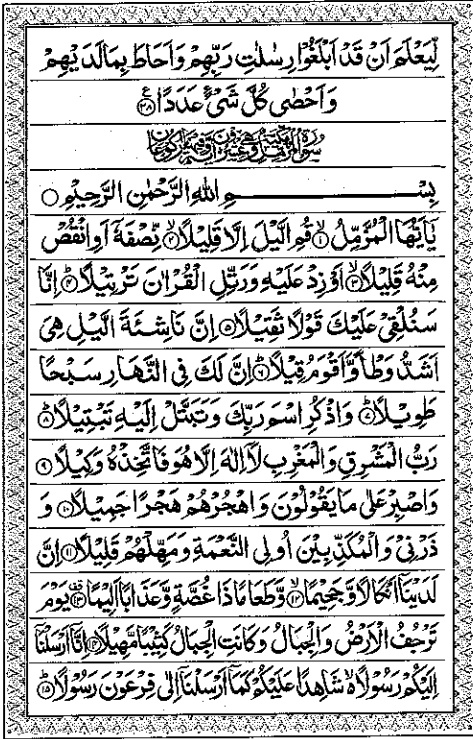 لِّيَعْلَمَ اَنْ قَدْ اَبْلَغُوْا رِسٰلٰتِ رَبِّهِمْ وَاَحَاطَ بِمَا لَدَيْهِمْ
وَاَحْصٰى كُلَّ شَىْءٍ عَدَدًا ﴿۲۸﴾
بِسْمِ اللهِ الرَّحْمٰنِ الرَّحِيْمِ
يٰۤاَيُّهَا الْمُزَّمِّلُ ﴿۱﴾ قُمِ الَّيْلَ اِلَّا قَلِيْلًا ﴿۲﴾ نِّصْفَهٗۤ اَوِ انْقُصْ
مِنْهُ قَلِيْلًا ﴿۳﴾ اَوْ زِدْ عَلَيْهِ وَرَتِّلِ الْقُرْاٰنَ تَرْتِيْلًا ﴿۴﴾ اِنَّا
سَنُلْقِىْ عَلَيْكَ قَوْلًا ثَقِيْلًا ﴿۵﴾ اِنَّ نَاشِئَةَ الَّيْلِ هِىَ
اَشَدُّ وَطْاً وَّاَقْوَمُ قِيْلًا ﴿۶﴾ اِنَّ لَكَ فِى النَّهَارِ سَبْحًا
طَوِيْلًا ﴿۷﴾ وَاذْكُرِ اسْمَ رَبِّكَ وَتَبَتَّلْ اِلَيْهِ تَبْتِيْلًا ﴿۸﴾
رَبُّ الْمَشْرِقِ وَالْمَغْرِبِ لَاۤ اِلٰهَ اِلَّا هُوَ فَاتَّخِذْهُ وَكِيْلًا ﴿۹﴾
وَاصْبِرْ عَلٰى مَا يَقُوْلُوْنَ وَاهْجُرْهُمْ هَجْرًا جَمِيْلًا ﴿۱۰﴾ وَ
ذَرْنِىْ وَالْمُكَذِّبِيْنَ اُولِى النَّعْمَةِ وَمَهِّلْهُمْ قَلِيْلًا ﴿۱۱﴾ اِنَّ
لَدَيْنَاۤ اَنْكَالًا وَّجَحِيْمًا ﴿۱۲﴾ وَّطَعَامًا ذَا غُصَّةٍ وَّعَذَابًا اَلِيْمًا ﴿۱۳﴾ يَوْمَ
تَرْجُفُ الْاَرْضُ وَالْجِبَالُ وَكَانَتِ الْجِبَالُ كَثِيْبًا مَّهِيْلًا ﴿۱۴﴾ اِنَّاۤ اَرْسَلْنَاۤ
اِلَيْكُمْ رَسُوْلًا شَاهِدًا عَلَيْكُمْ كَمَاۤ اَرْسَلْنَاۤ اِلٰى فِرْعَوْنَ رَسُوْلًا ﴿۱۵﴾